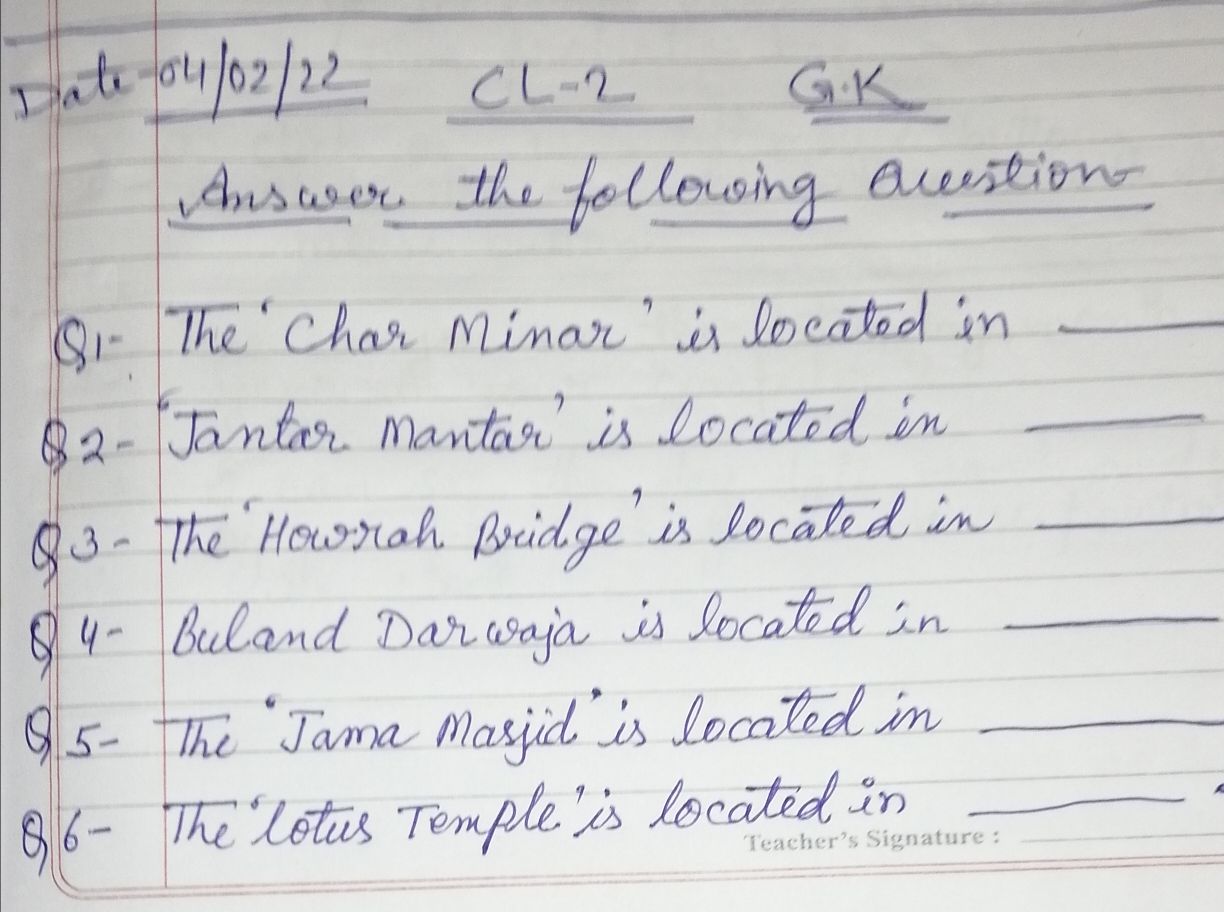 Date-04/02/22 CL-2 G.K
Answer the following Question
Q1- The 'Char Minar' is located in
Q2- 'Jantar Mantar' is located in
Q3- The 'Howrah Bridge' is located in
Q4- Buland Darwaja is located in
Q5- The 'Jama Masjid' is located in
Q6- The 'lotus Temple' is located in
Teacher's Signature :